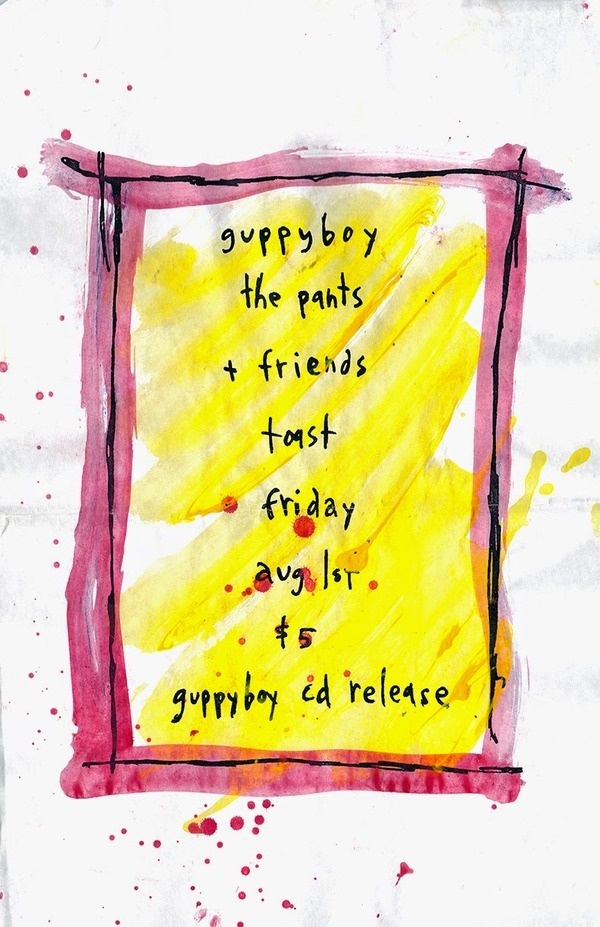 guppyboy
the pants
+ friends
toast
friday
aug 1st
$5
guppyboy cd release